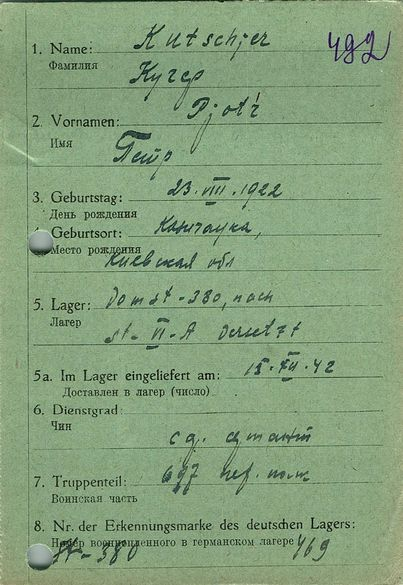 1. Name: Kutschjer 492
Фамилия
Кучер
2. Vornamen: Pjotr
Имя
Петр
3. Geburtstag: 23.VIII.1922
День рождения
4. Geburtsort:
Место рождения
Киевская обл
5. Lager: st-380, nach
Лагер
st-VI-A versetzt
5a. Im Lager eingeliefert am: 15.XII.42
Доставлен в лагер (число)
6. Dienstgrad:
Чин
7. Truppenteil:
Воинская часть
8. Nr. der Erkennungsmarke des deutschen Lagers:
Номер военнопленного в германском лагере 469
380